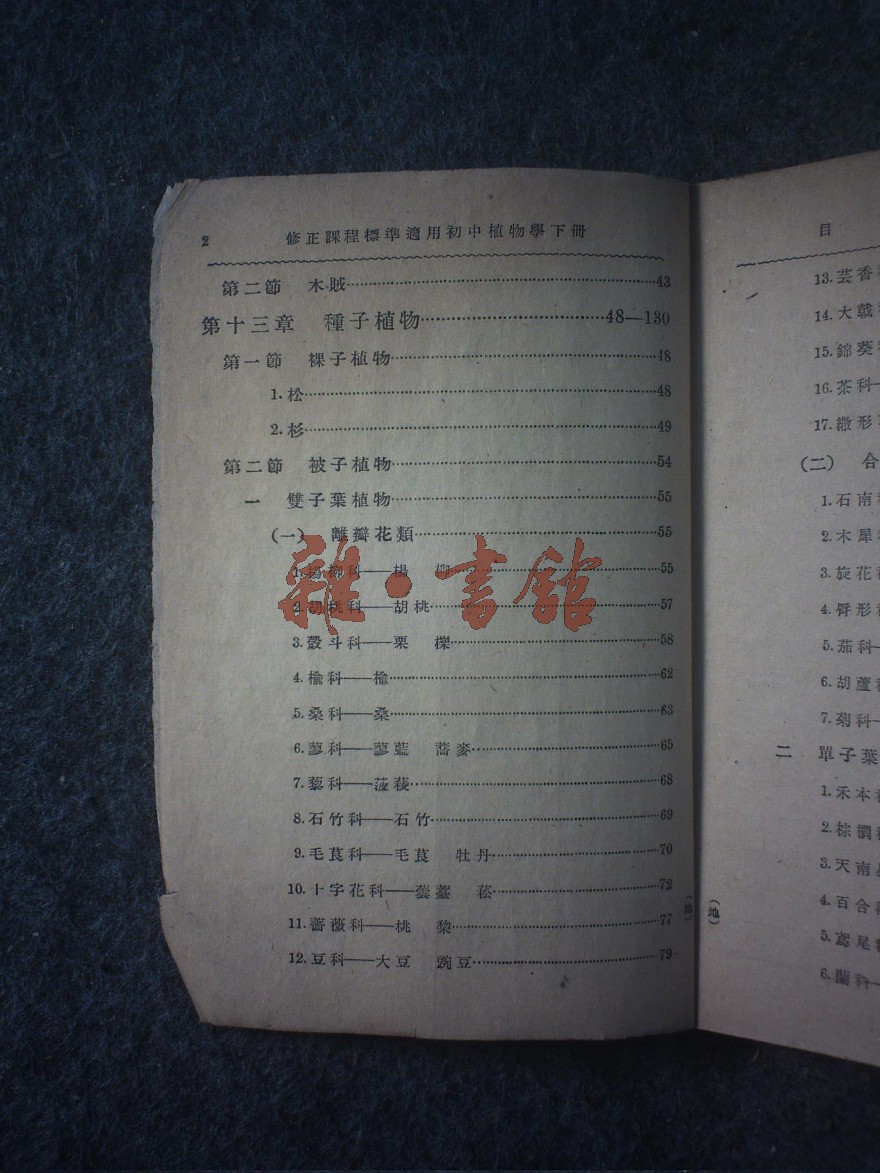 2 修正課程標準適用初中植物學下冊
第二節 木賊 43
第十三章 種子植物 48—130
第一節 裸子植物 48
1. 松 48
2. 杉 49
第二節 被子植物 54
一 雙子葉植物 55
(一) 離瓣花類 55
1. 楊柳科——楊 柳 55
2. 胡桃科——胡桃 57
3. 殼斗科——栗 櫟 58
4. 榆科——榆 62
5. 桑科——桑 63
6. 蓼科——蓼藍 蕎麥 65
7. 藜科——菠薐 68
8. 石竹科——石竹 69
9. 毛茛科——毛茛 牡丹 70
10. 十字花科——蕓薹 菘 72
11. 薔薇科——桃 黎 77
12. 豆科——大豆 豌豆 79
(地)
雜·書館
目
13. 芸香
14. 大戟
15. 錦葵
16. 茶科—
17. 繖形
(二) 合
1. 石南
2. 木犀
3. 旋花
4. 脣形
5. 茄科—
6. 胡蘆
7. 菊科—
二 單子葉
1. 禾本
2. 棕櫚
3. 天南
4. 百合
5. 鳶尾
6. 蘭科—
(地)